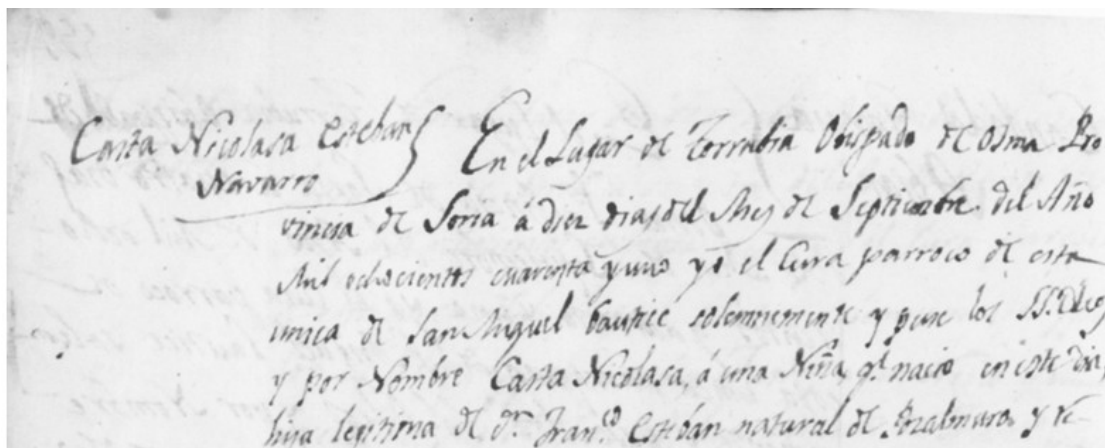 Casta Nicolasa Esteban
Navarro
En el Lugar de Torrubia Obispado de Osma Pro
vincia de Soria á diez dias del Mes de Septiembre del Año
Mil ochocientos cuarenta y uno yo el Cura parroco de esta
unica de San Miguel bautice solemnemente y puse los
y por Nombre Casta Nicolasa, á una Niña, qe. nacio en este dia,
hija legitima de Dn. Franco. Esteban natural de Pozalmuro y ve-